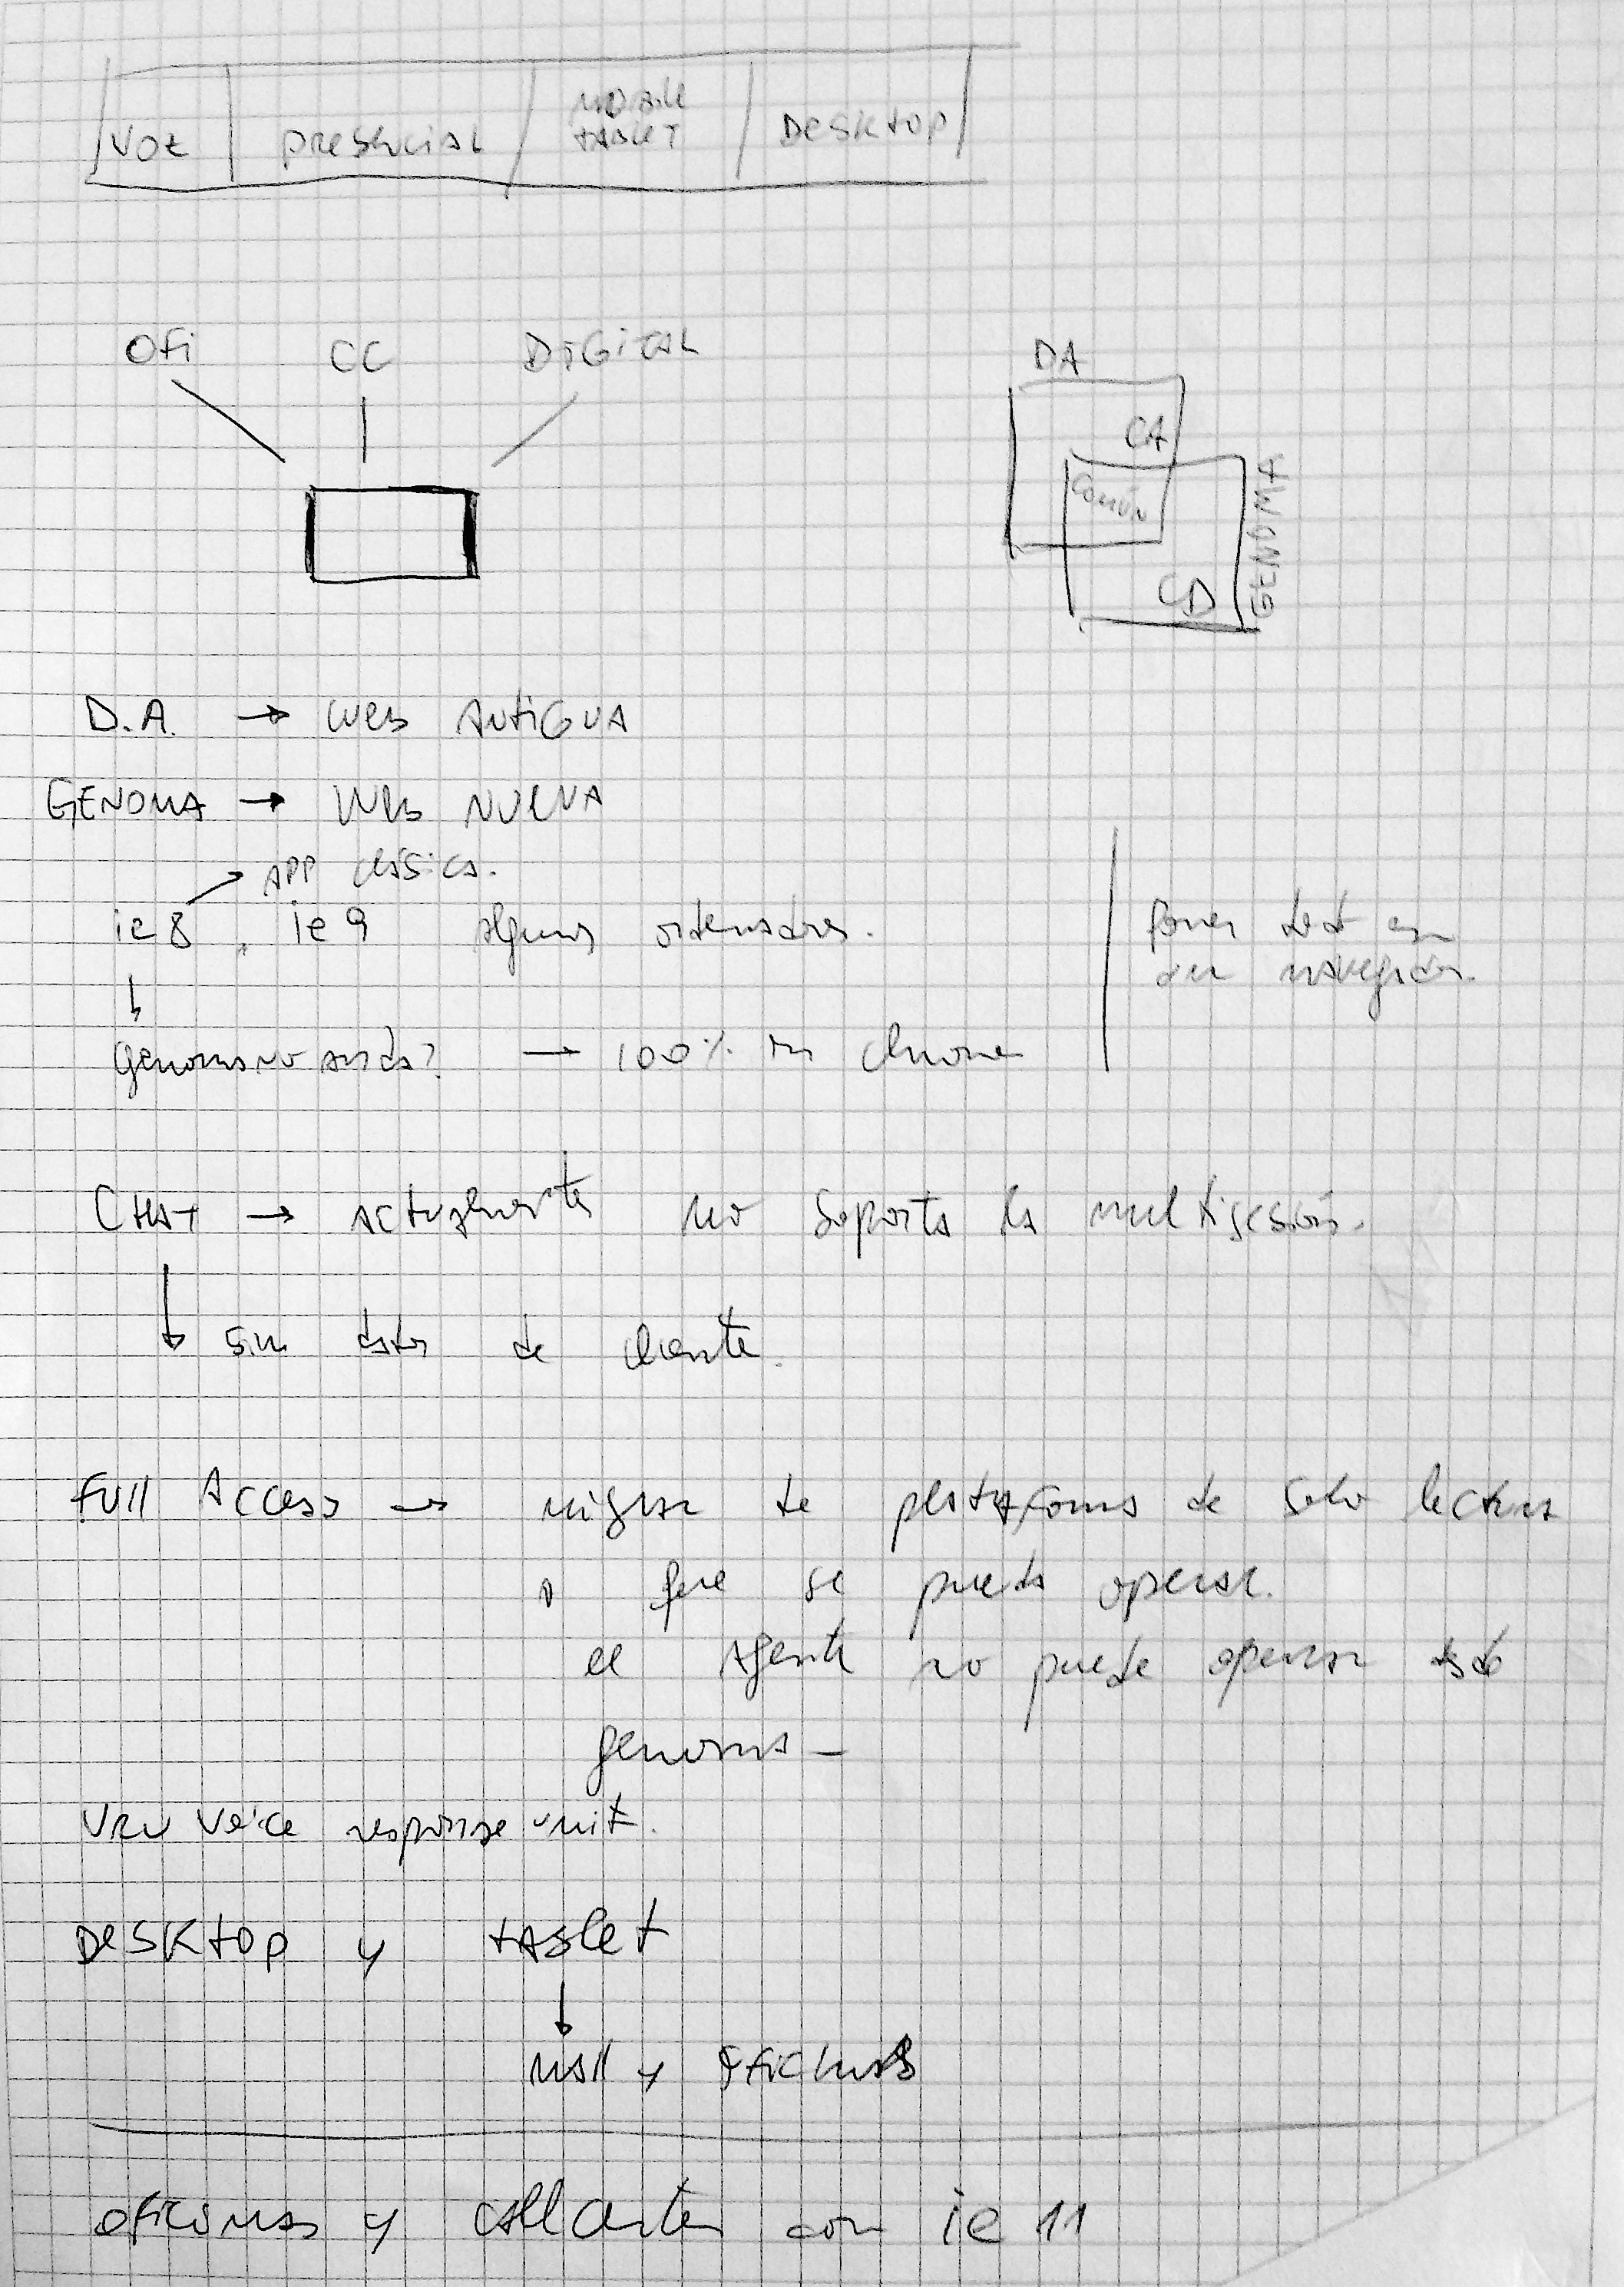 VOZ PRESENCIAL MOBILE DESKTOP
TABLET
OFI CC DIGITAL
DA
CA
COMÚN
CD
GENOMA
D.A. → WEB ANTIGUA
GENOMA → WEB NUEVA
APP clásica.
ie8, ie9 algunos ordenadores.
Poner test en
un navegador.
Genoma no anda? → 100% en chrome
CHAT → actualmente no soporta la multisesión.
sin datos de cliente.
Full Access → migrar de plataforma de solo lectura
a que se pueda operar.
el agente no puede operar desde
genoma –
VRU Voice response unit.
DESKTOP y tablet
y oficinas
oficinas y callcenter con ie 11